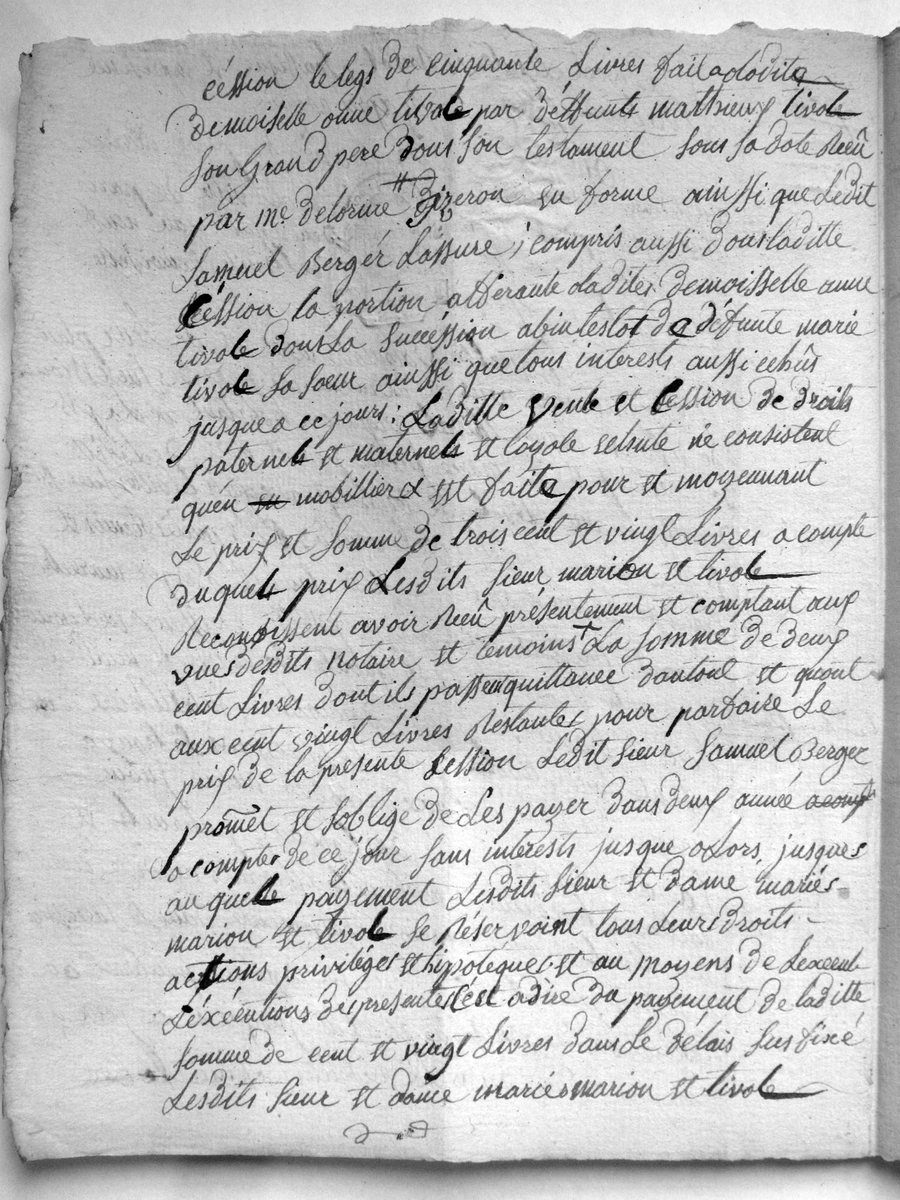 céssion le legs de cinquante Livres fait a ladite
demoiselle anne tivole par déffunt mathieux tivole
son Grand pere dans son testament sous sa date Reçû
par me delorme en forme ainssi que Ledit
Samuel Bergér Lassure ; compris aussi dans laditte
Céssion la portion afférante a ladite demoisselle anne
tivole dans La succéssion abintestat de défunte marie
tivole sa soeur ainssi que tous interests aussi echûs
jusque a ce jours : Laditte vente et Cession de droits
paternels et maternels et loyale ne consistent
quen en mobillier est faite pour et moyennant
Le prix et somme de trois cent et vingt Livres a compte
du quel prix Lesdits sieur marion et tivole
Reconoissent avoir Reçû présentement et comptant aux
vues desdits notaire et temoins La somme de deux
cent Livres dont ils passent quittance dautant et quant
aux cent vingt Livres Restantes pour parfaire Le
prix de la presente Cession Ledit sieur Samuel Berger
promet et soblige de Les payer dans deux année acompt
a compter de ce jour sans interests jusque alors, jusques
au quelle payement Lesdits sieur et dame mariés
marion et tivole se réservoint tous Leurs droits
actions priviléges et hipoteques et au moyens de Lexcent
Léxécutions des presentes C'est adire du payement de laditte
somme de cent et vingt Livres dans Le délais sus fixé
Lesdits sieur et dame mariés marion et tivole